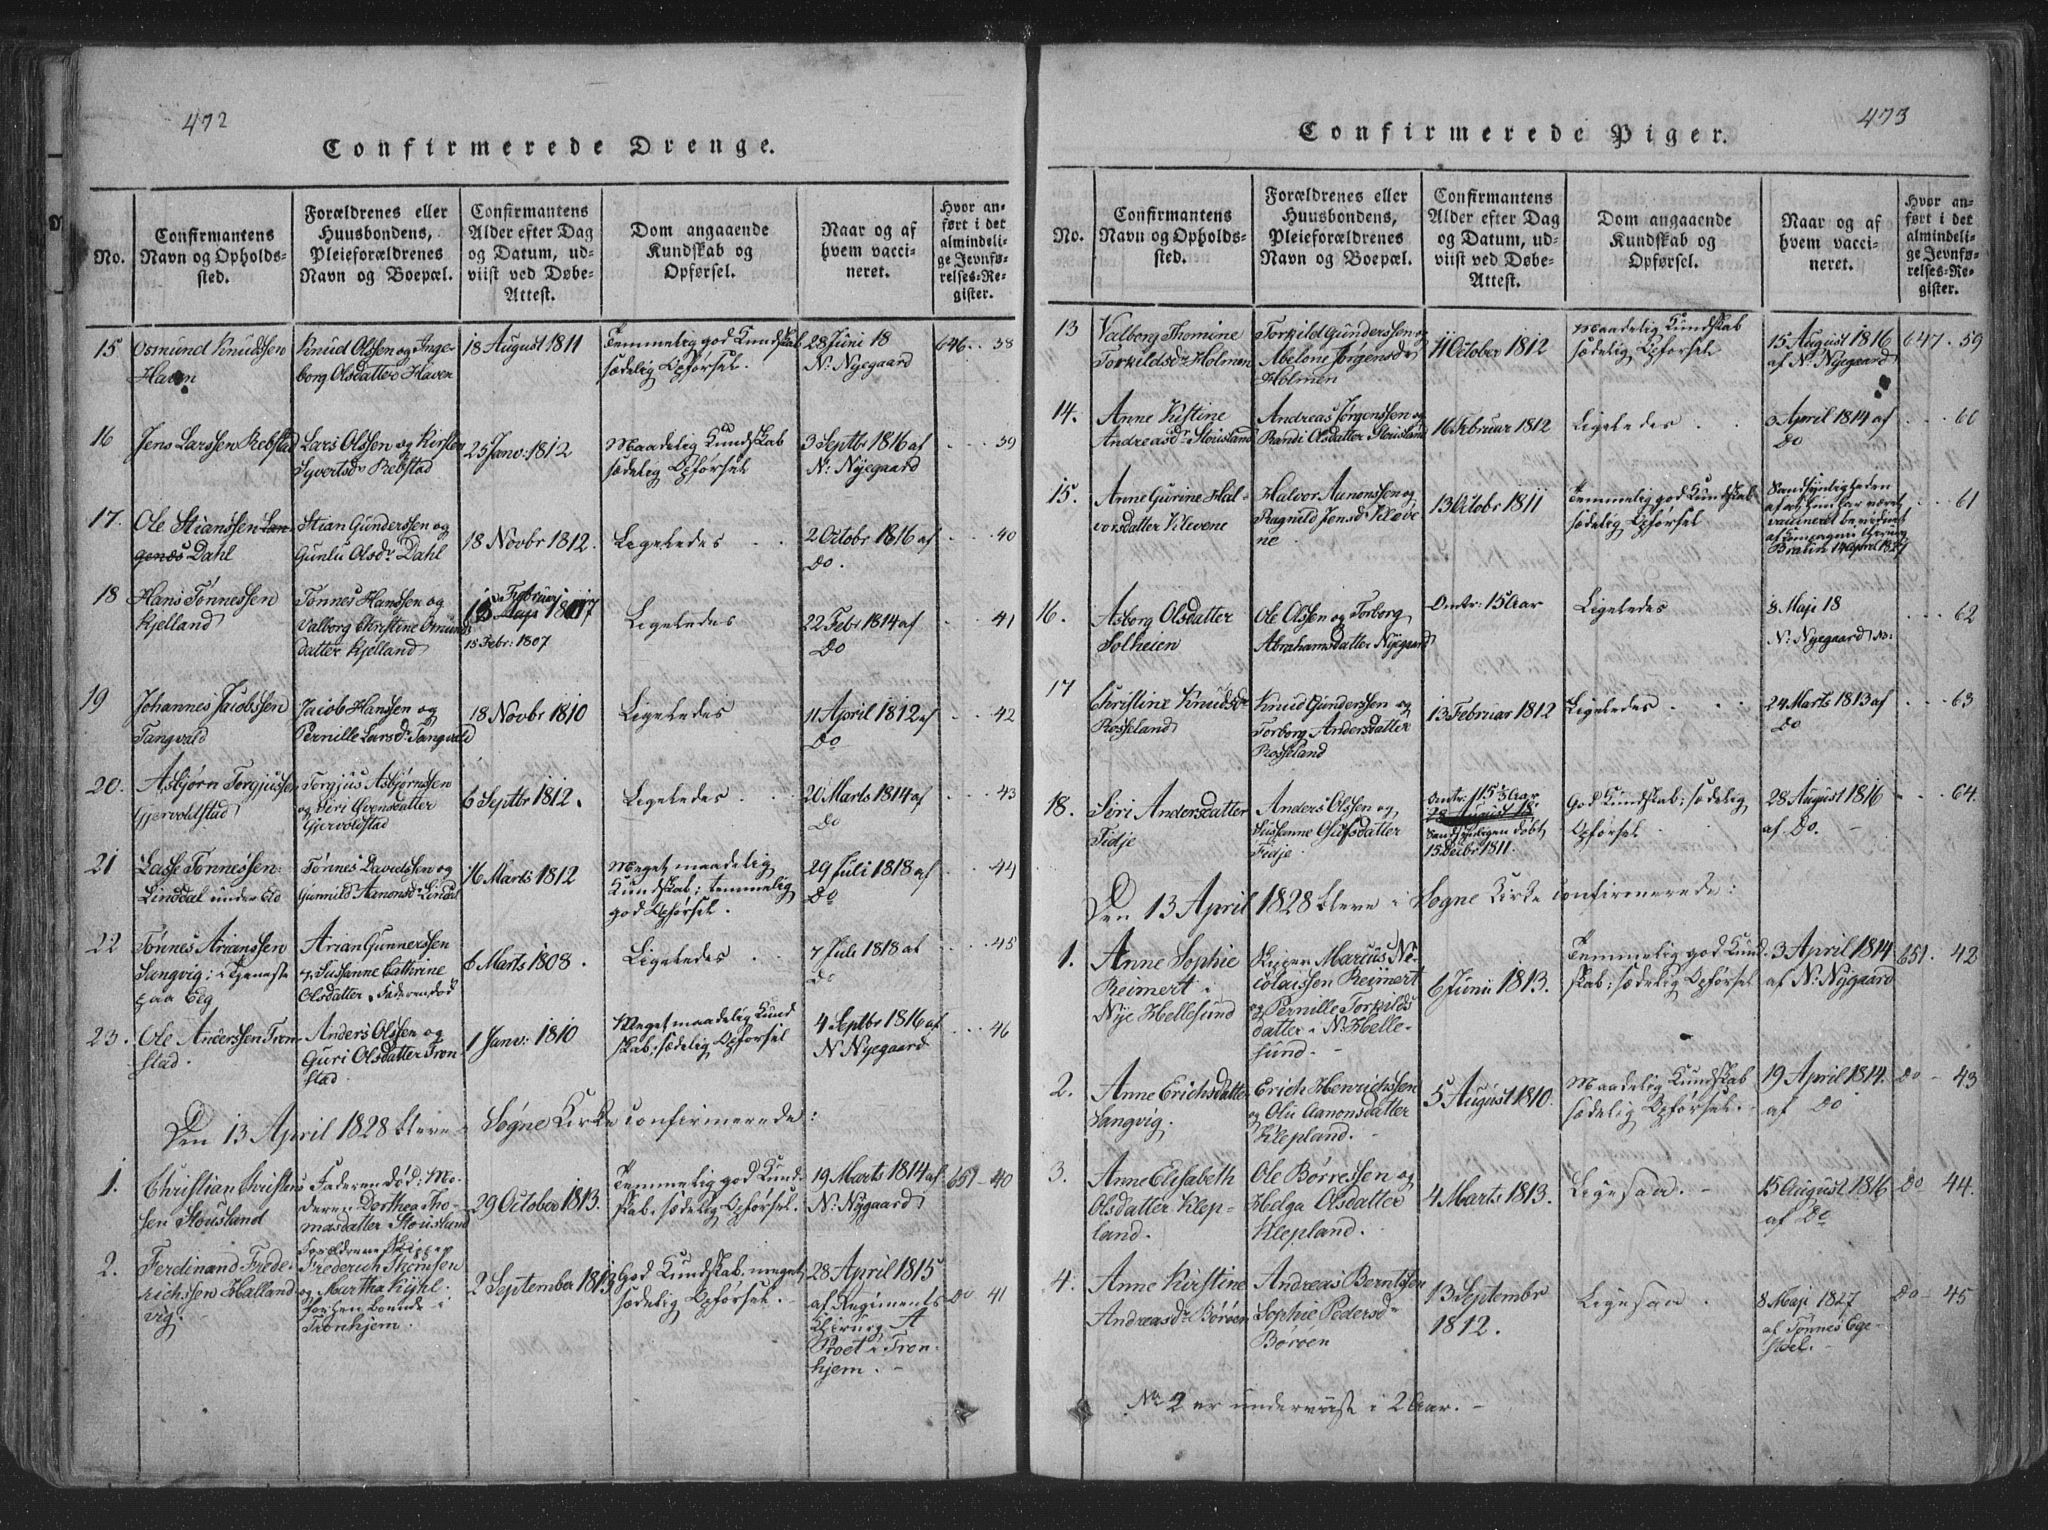 472
Confirmerede Drenge.
No.
Confirmantens
Navn og Opholds-
sted.
Forældrenes eller
Huusbondens,
Pleieforældrenes
Navn og Boepæl.
Confirmantens
Alder efter Dag
og Datum, ud-
viist ved Døbe-
Attest.
Dom angaaende
Kundskab og
Opførsel.
Naar og af
hvem vacci-
neret.
Hvor an-
ført i det
almindeli-
ge Jevnfø-
relses-Re-
gister.
15
Osmund Knudssen
Haven
Knud Olssen og Inge-
borg Olsdatter Haven
18 August 1811
Temmelig god Kundskab
sædelig Opførsel.
28 Juni 18
N: Nyegaard
646 . . 38
16
Jens Larssen Rebstad
Lars Olssen og Kirsten
Syvertsdr Rebstad
25 Janv: 1812
Maadelig Kundskab
sædelig Opførsel
3 Septbr 1816 af
N: Nyegaard
. . . 39
17.
Ole Stianssen Lan-
genæs Dahl
Stian Gunderssen og
Gunlu Olsdr Dahl
18 Novbr 1812.
Ligeledes
2 Octobr 1816 af
Do.
. . 40
18
Hans Tønnessen
Kjelland
Tønnes Hanssen og
Valborg Christine Osmunds
datter Kjelland
Februar
Maji 1807
15 Febr: 1807
Ligeledes
22 Febr 1814 af
Do
. . 41
19
Johannes Jacobssen
Tangvald
Jacob Hanssen og
Pernille Larsdr Tangvald
18 Novbr 1810
Ligeledes
11 April 1812 af
Do
. . . 42
20.
Asbjørn Torgjussen
Gjervoldstad
Torgjus Asbjørnssen
og Siri Svensdatter
Gjervoldstad
6 Septbr 1812.
Ligeledes
20 Marts 1814 af
Do
. . 43
21
Lasse Tønnessen
Linddal under Eeg
Tønnes Davidssen og
Gunnild Aanonsdr Linddal
16 Marts 1812
Meget maadelig
Kundskab; temmelig
god Opførsel.
29 Juli 1818 af
Do
. . 44
22
Tønnes Arianssen
Sangvig; i Tjeneste
paa Eeg
Arian Gunnerssen
og Susanne Cathrine
Olsdatter, Faderen død
6 Marts 1808.
Ligeledes
7 Juli 1818 af
Do
. . . 45
23.
Ole Anderssen Tron-
stad.
Anders Olssen og
Guri Olsdatter Tron
stad.
1 Janv: 1810
Meget maadelig Kund
skab; sædelig Opførsel
4 Septbr 1816 af
N Nyegaard
. . . 46
Den 13 April 1828 bleve i Søgne Kirke confirmerede:
1.
Christian Christens
sen Stousland
Faderen død: Mo-
deren Dorthea Tho-
masdatter Stousland
29 October 1813.
Temmelig god Kund
skab, sædelig Opførsel.
19 Marts 1814 af
N: Nygaard
651 - 40
2.
Ferdinand Frede-
richssen Halland
vig.
Forældrene Skipper
Frederich Thomsen
og Martha Kyhl
Tronhjem.
2 September 1813
God Kundskab, meget
sædelig Opførsel.
28 April 1815
af Regiments
Chirurg A
Proet i Tron
hjem.
Do 41
473
Confirmerede Piger.
No.
Confirmantens
Navn og Opholds-
sted.
Forældrenes eller
Huusbondens,
Pleieforældrenes
Navn og Boepæl.
Confirmantens
Alder efter Dag
og Datum, ud-
viist ved Døbe-
Attest.
Dom angaaende
Kundskab og
Opførsel.
Naar og af
hvem vacci-
neret.
Hvor an-
ført i det
almindeli-
ge Jevnfø-
relses-Re-
gister.
13
Valborg Thomine
Torkildsdr Holmen
Torkild Gunderssen og
Abelone Jørgensdr
Holmen
11 October 1812
Maadelig Kundskab
sædelig Opførsel
15 August 1816
af N: Nyegaard
647 . 59
14.
Anne Kistine
Andreasdr Stousland
Andreas Jørgenssen og
Randi Olsdatter Stousland
16 Februar 1812
Ligeledes
3 April 1814 af
Do
. . . 60
15.
Anne Gurine Hal-
vorsdatter Klevene
Halvor Aanonssen og
Ragnild Jensdr Kleve
ne
13 Octobr 1811
Temmelig god Kundskab
sædelig Opførsel
Sandsynligheden
af at hun har været
vaccineret bevidnet
14 April 1827
. . . 61
16.
Asborg Olsdatter
Solheien
Ole Olssen og Torborg
Abrahamsdatter Nyegaard
Omtr: 15 Aar
Ligeledes
8 Maji 18
N: Nyegaard
. . . 62
17
Christine Knudsdr
Rosseland
Knud Gunderssen og
Torborg Andersdatter
Rosseland
13 Februar 1812
Ligeledes
24 Marts 1813 af
Do
. . . 63
18.
Siri Andersdatter
Fidje
Anders Olssen og
Susanne Olafsdatter
Fidje
Omtr: 15 ½ Aar
28 August 18
Sandsynligen døbt
15 Decbr 1811.
God Kundskab; sædelig
Opførsel
28 August 1816
af Do.
- - 64.
Den 13 April 1828 bleve i Søgne Kirke confirmerede:
1.
Anne Sophie
Reimert
Nye Hellesund
Skipper Marcus Ni-
colaissen Reimert
og Pernille Torkilds
datter i N: Helle-
sund.
6 Junii 1813.
Temmelig god Kund
skab; sædelig Opførsel
3 April 1814
af N: Nygaard
651. 42
2.
Anne Erichsdatter
Sangvig.
Erich Henrichssen
og Olu Aanonsdatter
Klepland.
5 August 1810.
Maadelig Kundskab
sædelig Opførsel.
19 April 1814.
af Do
Do - 43
3.
Anne Elisabeth
Olsdatter Klep-
land.
Ole Børressen og
Helga Olsdatter
Klepland.
4 Marts 1813.
Ligesaa.
15 August 1816
af Do
Do 44.
4.
Anne Kirstine
Andreasdr Børøen
Andreas Berntssen
Sophie Pedersdr
Børøen
13 Septembr
1812.
Ligesaa
8 Maji 1827
af Tønnes Ege-
støel.
Do - 45
No 2 er underviist i 2 Aar.